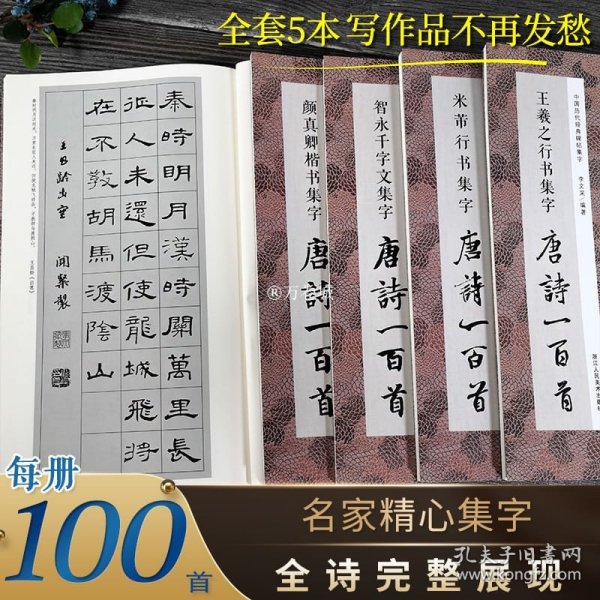 全套5本 写作品不再发愁
秦時明月漢時關萬里長
征人未還但使龍城飛將
在不教胡馬渡陰山
颜真卿楷书集字
唐詩一百首
智永千字文集字
唐詩一百首
米芾行书集字
唐詩一百首
中国历代经典碑帖集字
李文采·编著
王羲之行书集字
唐詩一百首
浙江人民美术出版社
每册
100
首
名家精心集字
全诗完整展现
孔夫子旧书网
www.kongfz.com